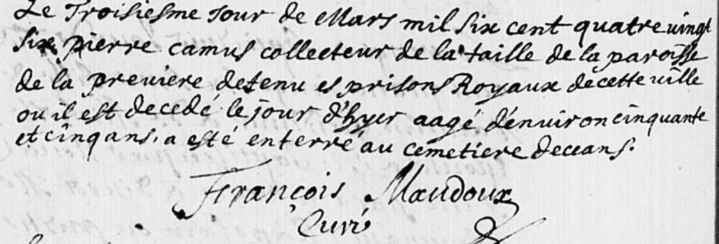 Le Troisiesme Jour de Mars mil six cent quatre vingt
six pierre camus collecteur de la taille de la paroisse
de la previere detenu es prisons Royaux de cette ville
ou il est decedé le jour d'hyer aagé d'environ cinquante
et cinq ans, a esté enterré au cemetiere de ceans.
François Maudoux
Curé